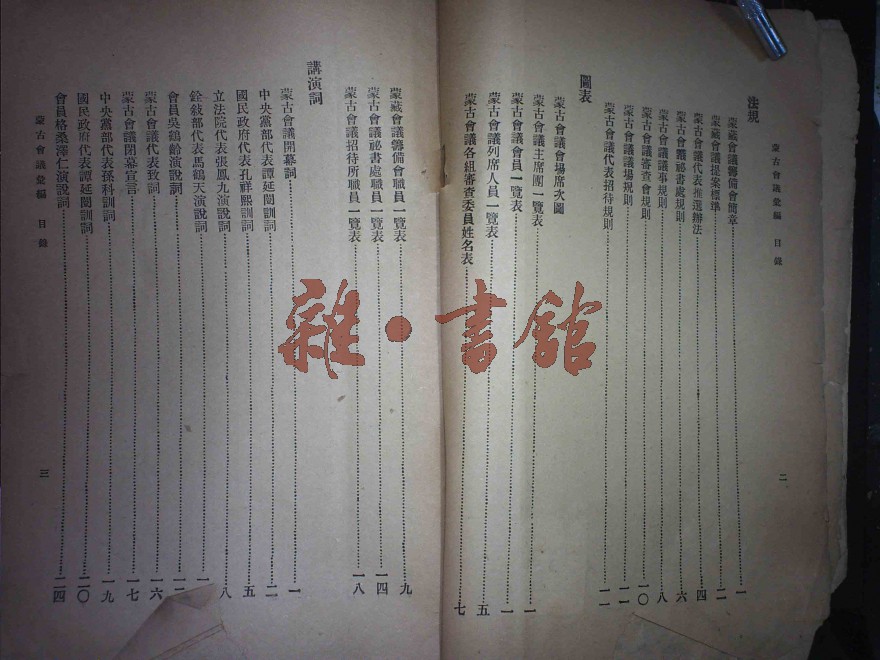 蒙古會議彙編　目錄
二
法規
蒙藏會議籌備會簡章 一
蒙藏會議提案標準 二
蒙古會議代表推選辦法 四
蒙古會議祕書處規則 六
蒙古會議議事規則 八
蒙古會議審查會規則 一〇
蒙古會議議場規則 一一
蒙古會議代表招待規則 一一
圖表
蒙古會議會場席次圖
蒙古會議主席團一覽表 一
蒙古會議會員一覽表 一
蒙古會議列席人員一覽表 五
蒙古會議各組審查委員姓名表 七
蒙藏會議籌備會職員一覽表 九
蒙古會議祕書處職員一覽表 一四
蒙古會議招待所職員一覽表 一八
講演詞
蒙古會議開幕詞 一
中央黨部代表譚延闓訓詞 二
國民政府代表孔祥熙訓詞 五
立法院代表張鳳九演說詞 八
銓敍部代表馬鶴天演說詞
會員吳鶴齡演說詞
蒙古會議代表致詞 一六
蒙古會議閉幕宣言 一七
中央黨部代表孫科訓詞 一九
國民政府代表譚延闓訓詞 二〇
會員格桑澤仁演說詞 二四
蒙古會議彙編　目錄
三
雜·書館